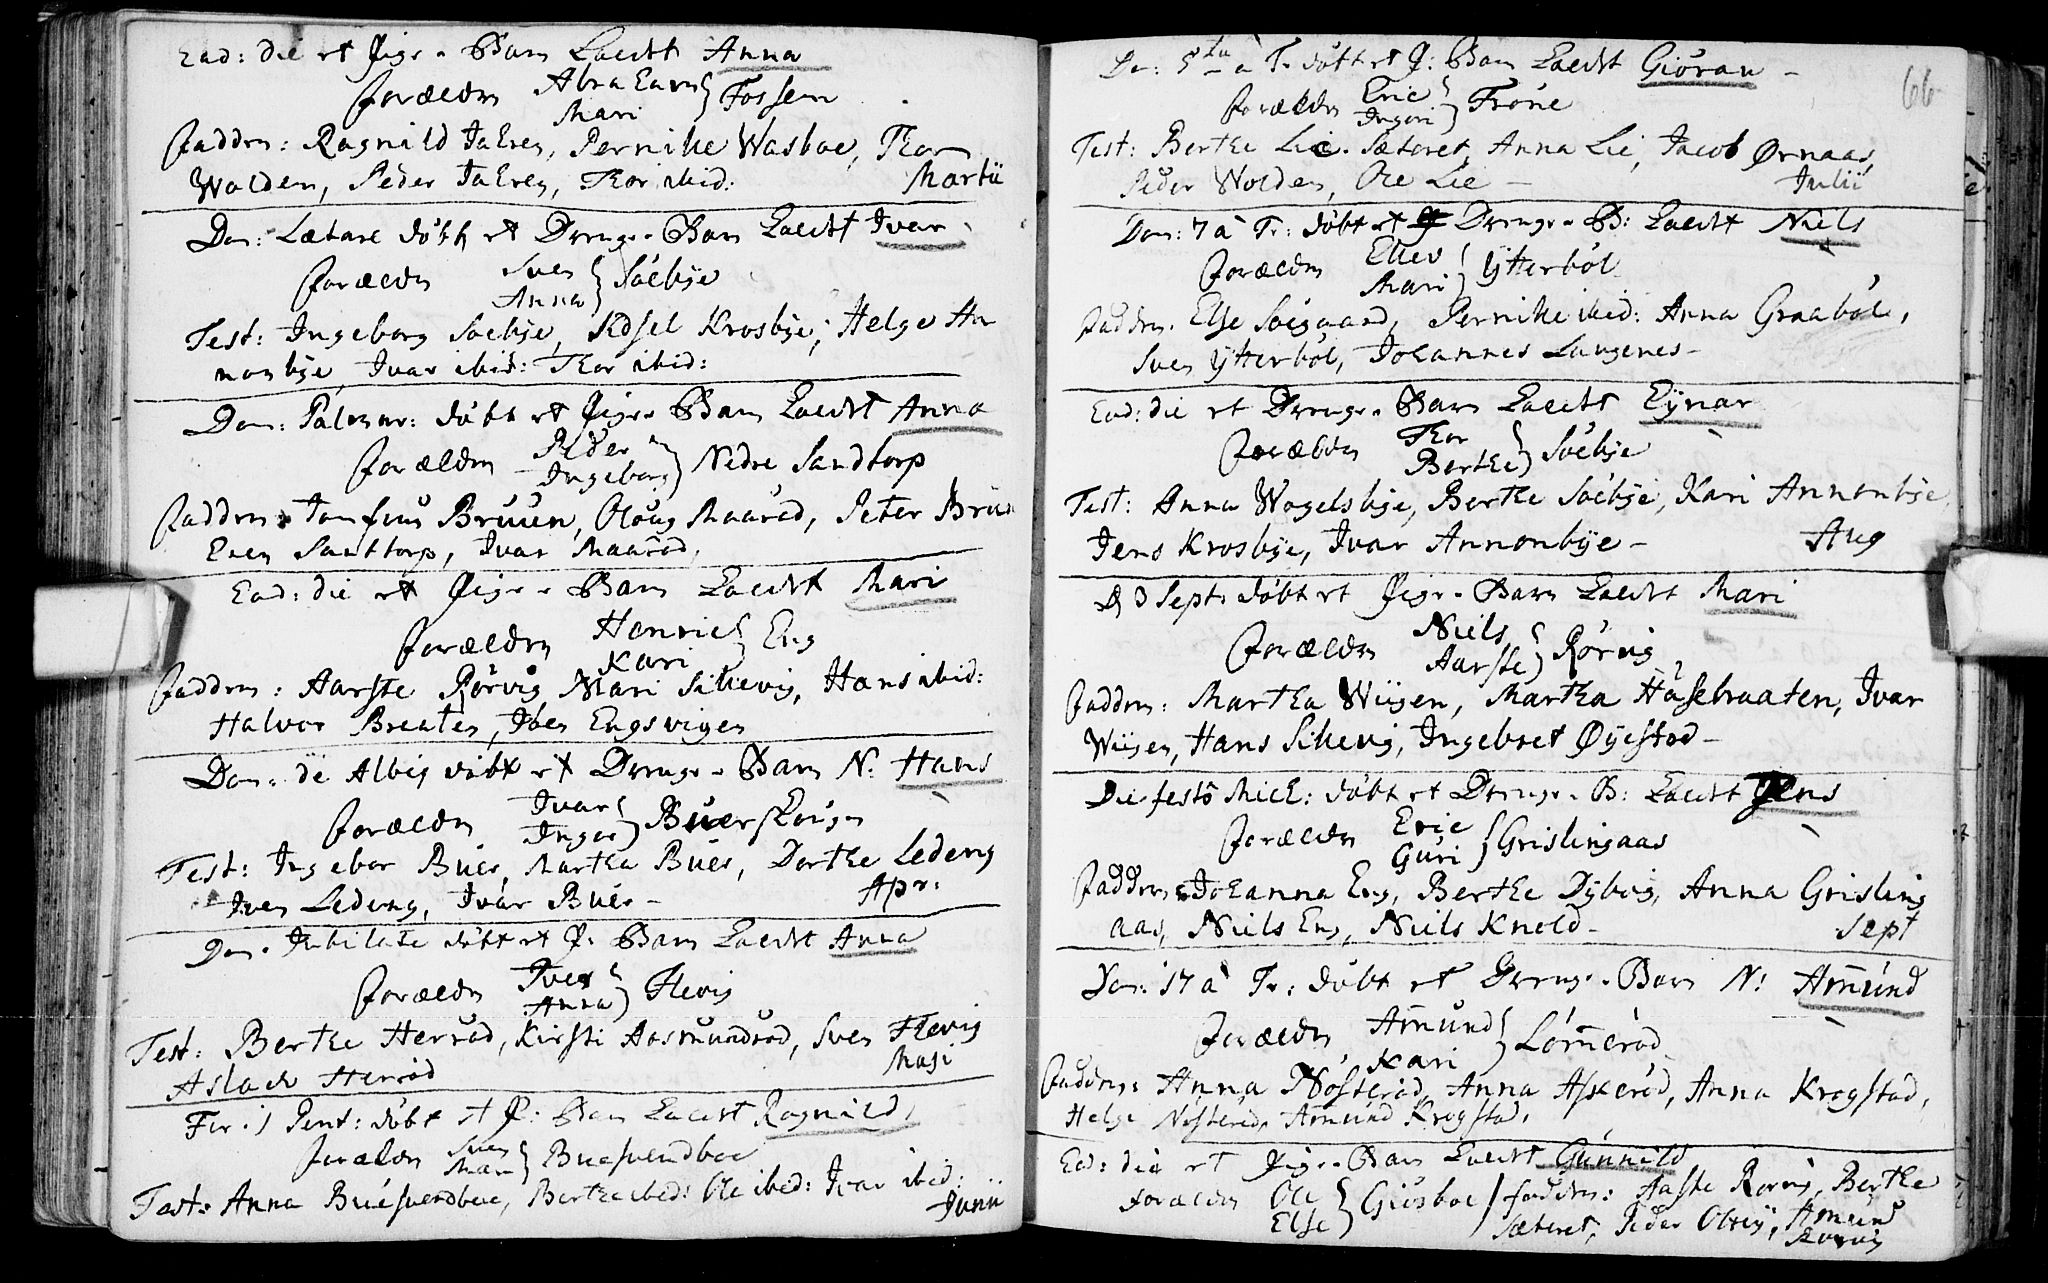 Ead: die et Pige-Barn kaldt Anna
Forældre Abraham Fossen
Mari
Faddere: Ragnild Jahren, Pernille Wasboe, Thor
Wolden, Peder Jahren, Thor ibid: Martii
Dom: Lætare döbt et Drenge-Barn kaldt Ivar
Forældre Sven Söebye
Anna
Test: Ingeborg Söebye, Sidsel Krosbye, Helge An
nonbye, Ivar ibid: Thor ibid:
Dom: Palmar: döbt et Pige-Barn kaldt Anna
Forældre Peder Nedre Sandtorp
Ingeborg
Faddere Bruun, Peter Bruun
Even Santtorp, Ivar Maaröd,
Ead: die et Pige-Barn kaldt Mari
Forældre Henric Eng
Kari
Faddere: Aarste Rörvig Mari Sikevig, Hans ibid:
Halvor Breaten, Joen Engsvigen
Dom: de Albis döbt et Drenge-Barn N: Hans
Forældre Ivar Buerskougen
Inger
Test: Ingebor Buer, Martha Buer, Dorthe Ledeng
Iver Ledeng, Ivar Buer- Apr:
Dom. Jubilate döbt et P: Barn kaldt Anna
Forældre Iver Flevig
Anna
Test: Berthe Herröd, Kirsti Aasmundröd, Sven Flevig
Aslach Herröd Maji
Fer: 1 Pent: döbt et P: Barn kaldt Ragnild,
Forældre Sven Buesvendboe
Mari
Test: Anna Buesvendboe, Berthe ibid: Ole ibid: Ivar ibid:
Junii
66
Do: 5ta à Tr. döbt et P: Barn kaldt Giöran -
Forældre Eric Tröne
Ingeri
Test: Berthe Lie. Sæteret, Anna Lie, Jacob Ørnaas,
Peder Wolden, Ole Lie - Julii
Dom: 7 à Tr: döbt et Drenge-B: kaldt Niels
Forældre Ellev Ytterböl
Mari
Faddere. Else Soigaard, Pernille ibid: Anna Graaböl,
Sven Ytterböl, Johannes Langenes-
Ead: die et Drenge-Barn kaldt Eÿnar
Forældre Thor Söebye
Berthe
Test: Anna Wogelsbye, Berthe Söebÿe, Kari Annonbye,
Jens Krosbÿe, Ivar Annonbÿe- Aug
D 3 Sept: döbt et Pige-Barn kaldt Mari
Forældre Niels Rörvig
Aarste
Faddere: Martha Wiigen, Martha Håsebraaten, Ivar
Wiigen, Hans Sikevig, Ingebret Øyestad-
Die festo Mich: döbt et Drenge-B: kaldt Jens
Forældre Eric Grislingaas
Guri
Faddere Johanna Eng, Berthe Dybvig, Anna Grisling
aas, Niels Eng, Niels Knold- Sept
Dom: 17 à Tr: döbt et Drenge-Barn N: Amund
Forældre Amund Lömeröd
Kari
Faddere: Anna Nösteröd, Anna Askeröd, Anna Krogstad,
Helge Nösteröd, Amund Krogstad,
Ead: die et Pige-Barn kaldt Gunnild
Forældre Ole Giusboe / Faddere: Aaste Rörvig, Berthe
Else Sæteret, Peder Amund
Rörvig